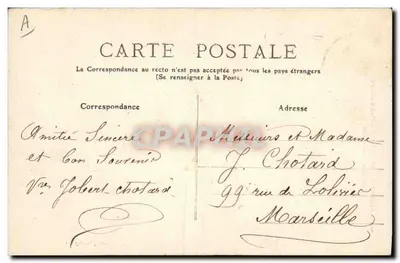 A
CARTE POSTALE
La Correspondance au recto n'est pas acceptée par tous les pays étrangers
(Se renseigner à la Poste)
Correspondance
Adresse
Amitié Sincère
et bon Souvenir
Jobert Chotard
Messieurs et Madame
J. Chotard
99 rue de
Marseille